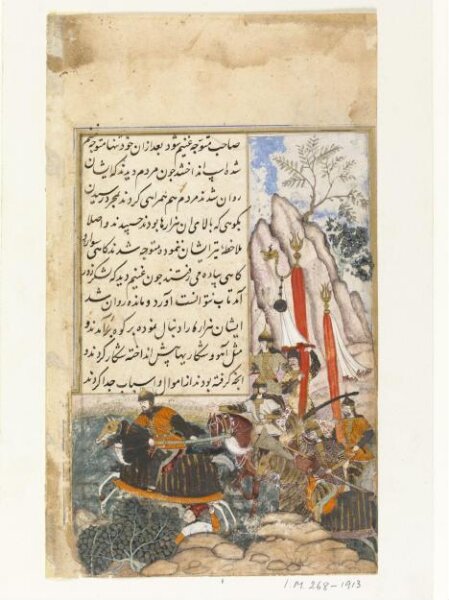 صاحب متوجه غنیم شود بعد ازان خود تنها متوجه
شده اسپ انداختند چون مردم دیدند که ایشان
روان شدند مردم هم همراهی کردند بمجرد رسیدن
بکوهی که بالای ان هزارها بودند چسپیدند و اصلا
ملاحظه تیر ایشان ننموده متوجه شدند گاهی سواره و
گاهی پیاده می رفتند چون غنیم دید که لشکر زور
آمد تاب نتوانست اورد و مانده روان شد
ایشان هزارها را دنبال نموده بر کوه برآمدند و
مثل آهو و شکاریها پیش انداخته شکار کردند و
انچه گرفته بودند از اموال و اسباب جدا کردند
I.M. 268-1913